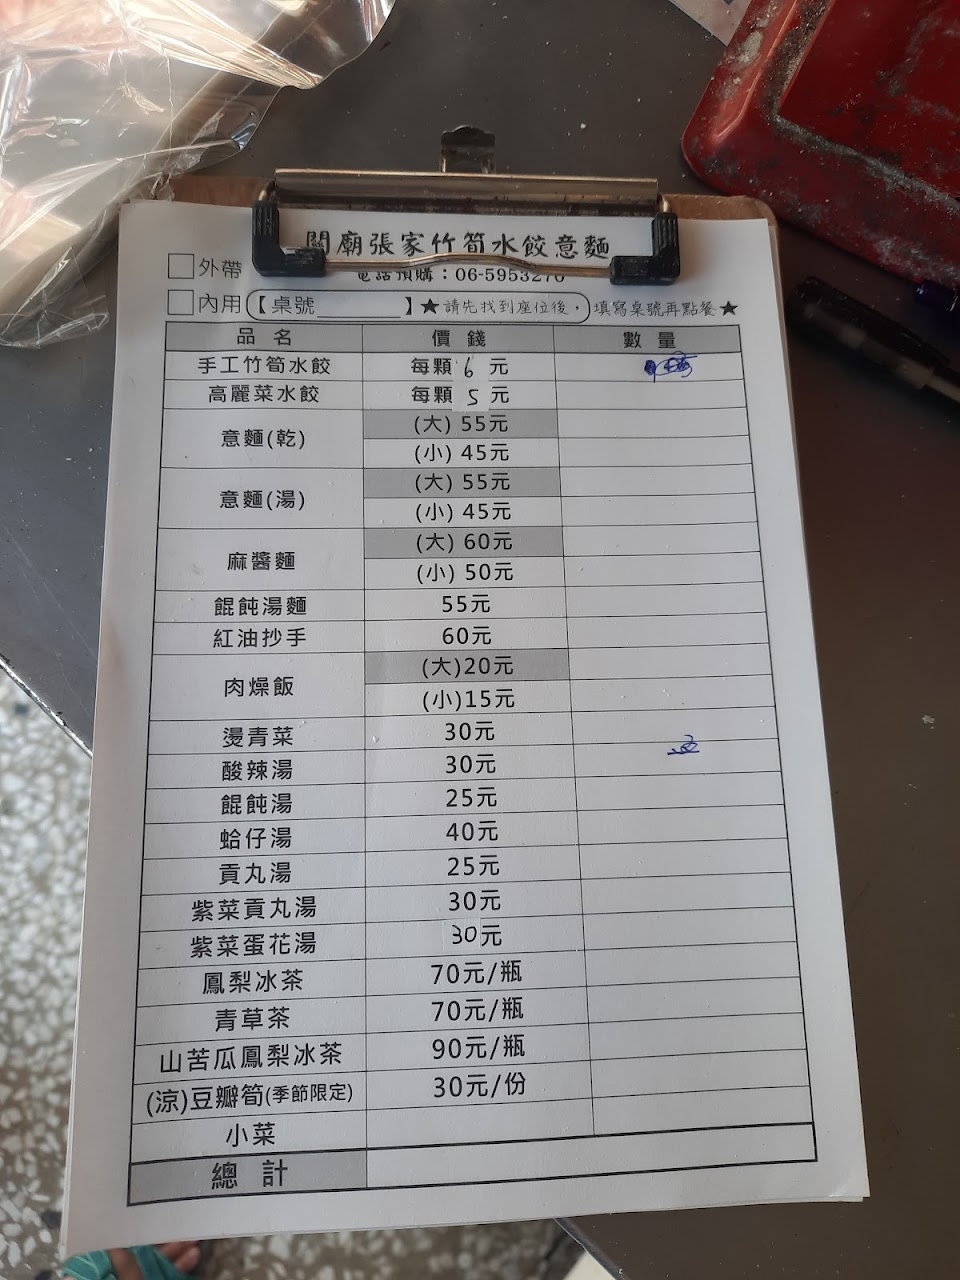 關廟張家竹筍水餃意麵
電話預購：06-5953270
□外帶
□內用【桌號______】★請先找到座位後，填寫桌號再點餐★
品名 價錢 數量
手工竹筍水餃 每顆 6 元
高麗菜水餃 每顆 5 元
意麵(乾) (大) 55元
(小) 45元
意麵(湯) (大) 55元
(小) 45元
麻醬麵 (大) 60元
(小) 50元
餛飩湯麵 55元
紅油抄手 60元
肉燥飯 (大)20元
(小)15元
燙青菜 30元
酸辣湯 30元
餛飩湯 25元
蛤仔湯 40元
貢丸湯 25元
紫菜貢丸湯 30元
紫菜蛋花湯 30元
鳳梨冰茶 70元/瓶
青草茶 70元/瓶
山苦瓜鳳梨冰茶 90元/瓶
(涼)豆瓣筍(季節限定) 30元/份
小菜
總計